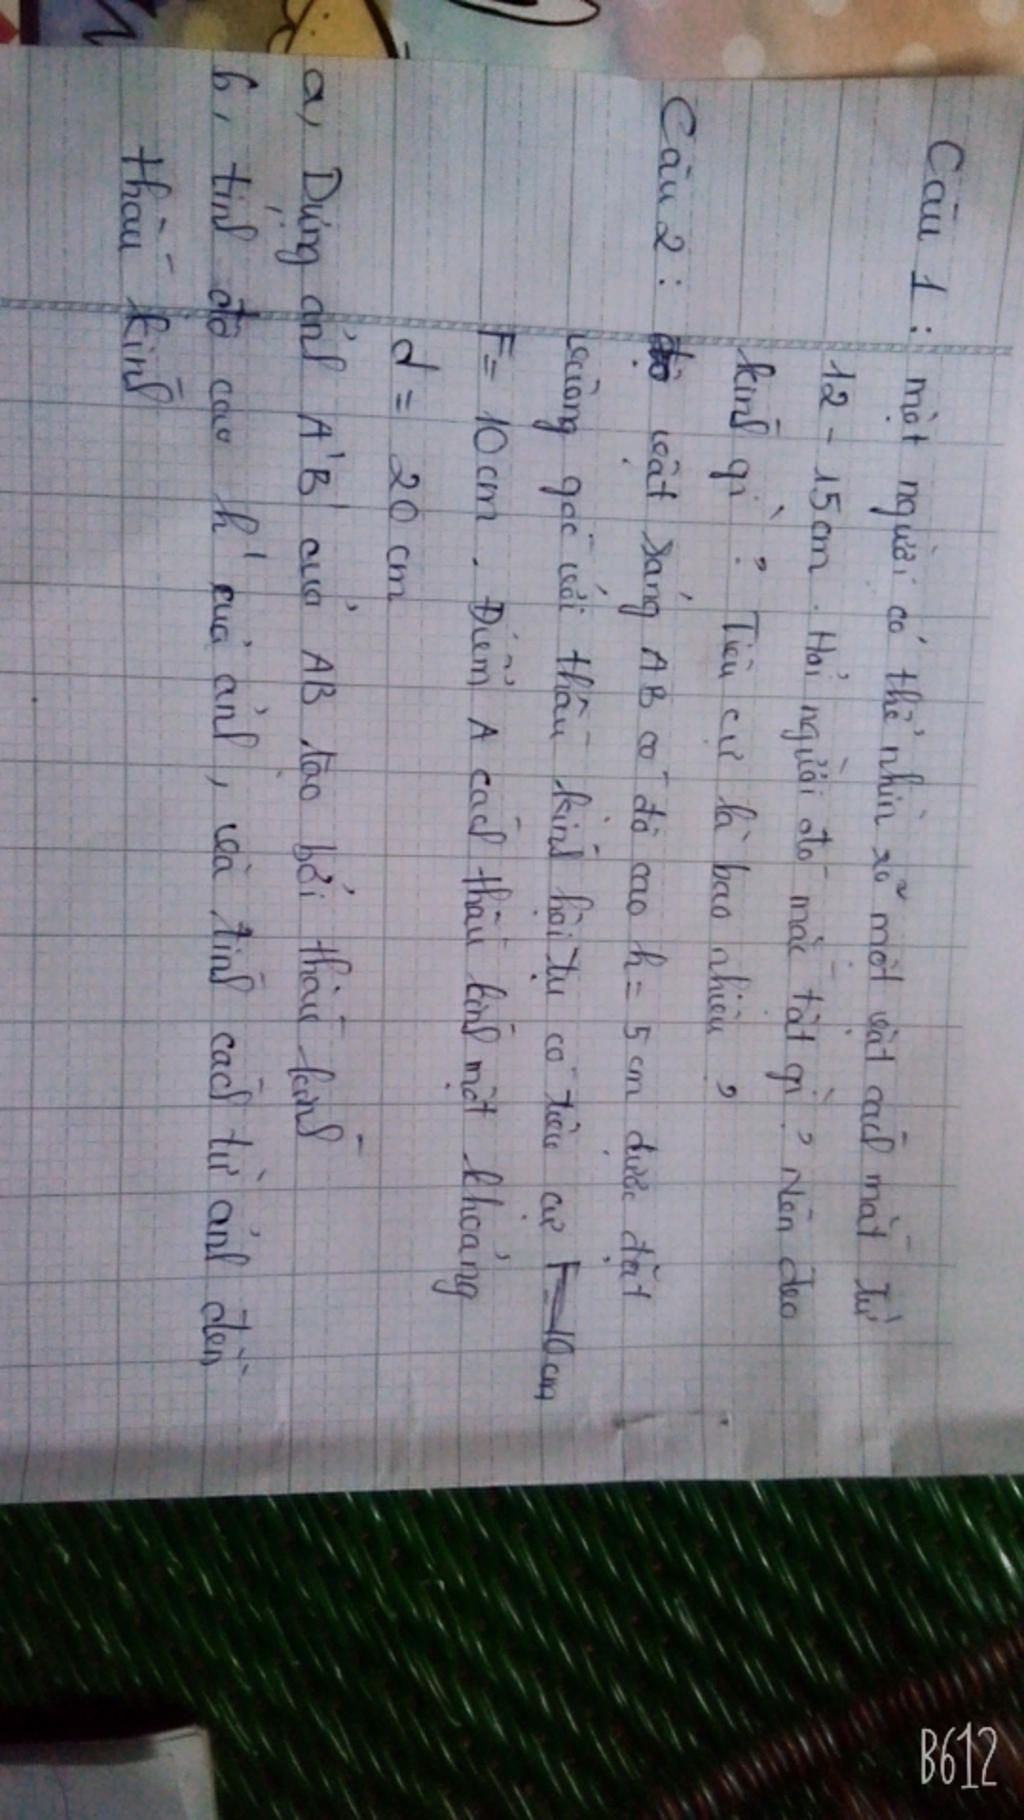 Câu 1: một người có thể nhìn rõ một vật cách mắt từ
12 - 15cm. Hỏi người đó mắc tật gì? Nên đeo
kính gì? Tiêu cự là bao nhiêu?
Câu 2: vật sáng AB có độ cao h = 5cm được đặt
vuông góc với thấu kính hội tụ có tiêu cự F=10cm
F= 10cm. Điểm A cách thấu kính một khoảng
d = 20cm
a, Dựng ảnh A'B' của AB tạo bởi thấu kính
b, tính độ cao h' của ảnh, và tính cách từ ảnh đến
thấu kính
B612